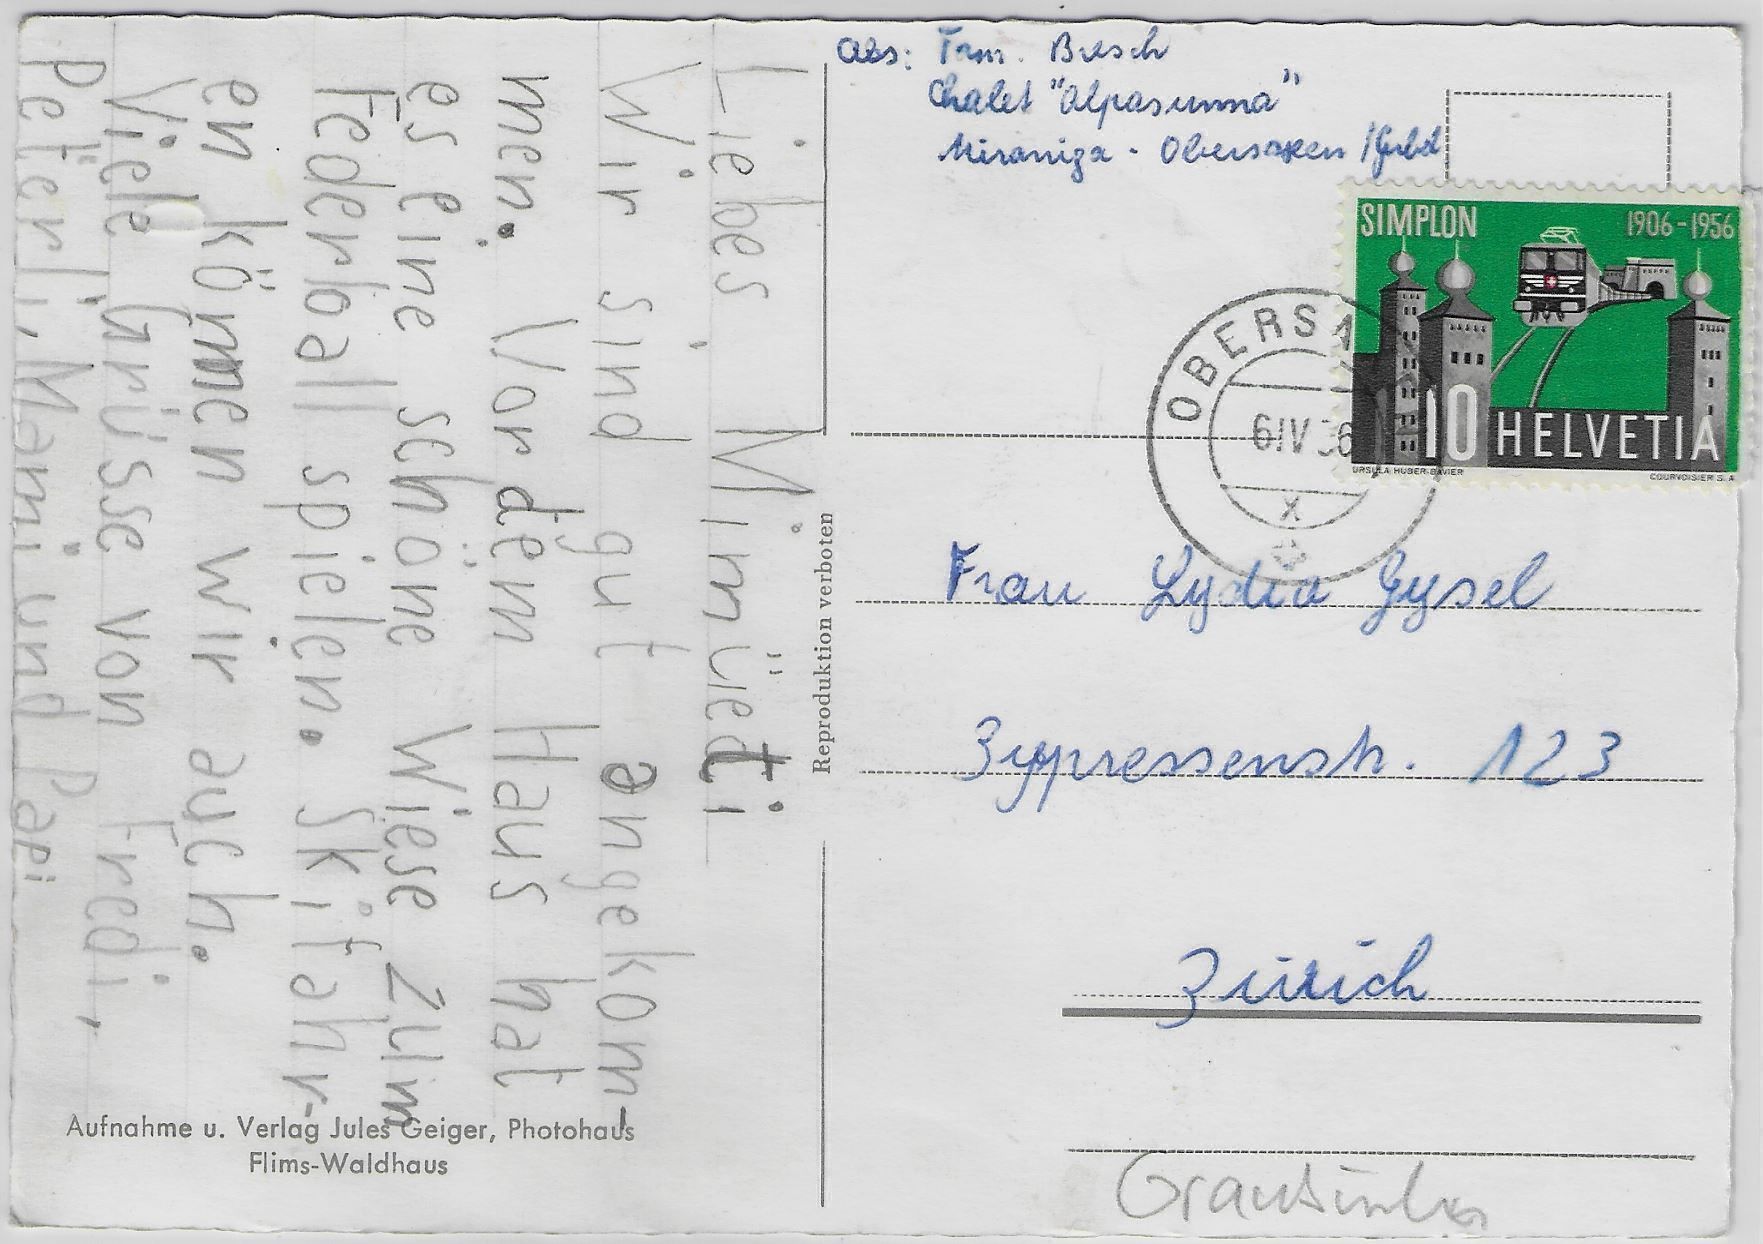 Liebes Minüeti
Wir sind gut angekon-
men. Vor dem Haus hat
es eine schöne Wiese zum
Federball spielen. Skifahr-
en können wir auch.
Viele Grüsse von Fredi,
Peterli, Mami und Papi
Abs: Fam. Büsch
Chalet "Alpasunna"
Miraniga - Obersaxen / Grbd
SIMPLON 1906-1956
10 HELVETIA
URSULA HUBER-BAVIER COURVOISIER S.A.
OBERSA
6.IV.56
X
Reproduktion verboten
Frau Lydia Gysel
Zypressenstr. 123
Zürich
Aufnahme u. Verlag Jules Geiger, Photohaus
Flims-Waldhaus
Graubünden